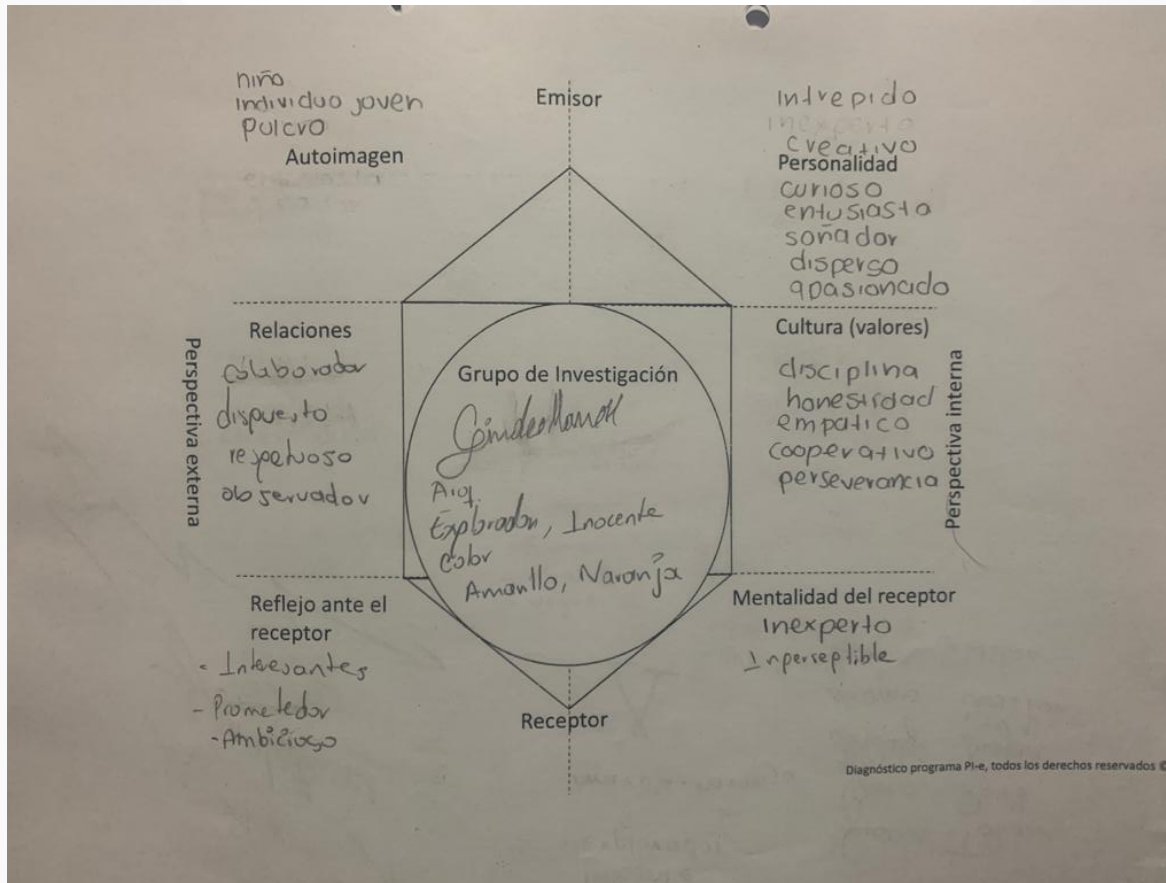 niño
individuo joven
pulcro
Autoimagen
Emisor
intrepido
inexperto
creativo
Personalidad
curioso
entusiasta
soñador
disperso
apasionado
Relaciones
colaborador
dispuesto
respetuoso
observador
Perspectiva externa
Grupo de Investigación
Arq.
Explorador, Inocente
Color
Amarillo, Naranja
Cultura (valores)
disciplina
honestidad
empatico
cooperativo
perseverancia
Perspectiva interna
Reflejo ante el
receptor
- Interesantes
- Prometedor
- Ambicioso
Receptor
Mentalidad del receptor
Inexperto
Inperseptible
Diagnóstico programa PI-e, todos los derechos reservados ©